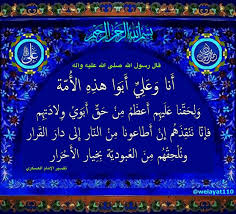 بسم الله الرحمن الرحيم
قال رسول الله صلى الله عليه واله
أَنَا وَعَلِيٌّ أَبَوَا هَذِهِ الأُمَّةِ
وَلَحَقُّنَا عَلَيهِم أَعظَمُ مِن حَقِّ أَبَوَيْ وِلَادَتِهِم
فَإِنَّا نُنقِذُهُم إِن أَطَاعُونَا مِنَ النَّارِ إِلَى دَارِ القَرَارِ
وَنُلحِقُهُم مِنَ العُبُودِيَّةِ بِخِيَارِ الأَحرَارِ
تفسير الإمام العسكري
@welayat110